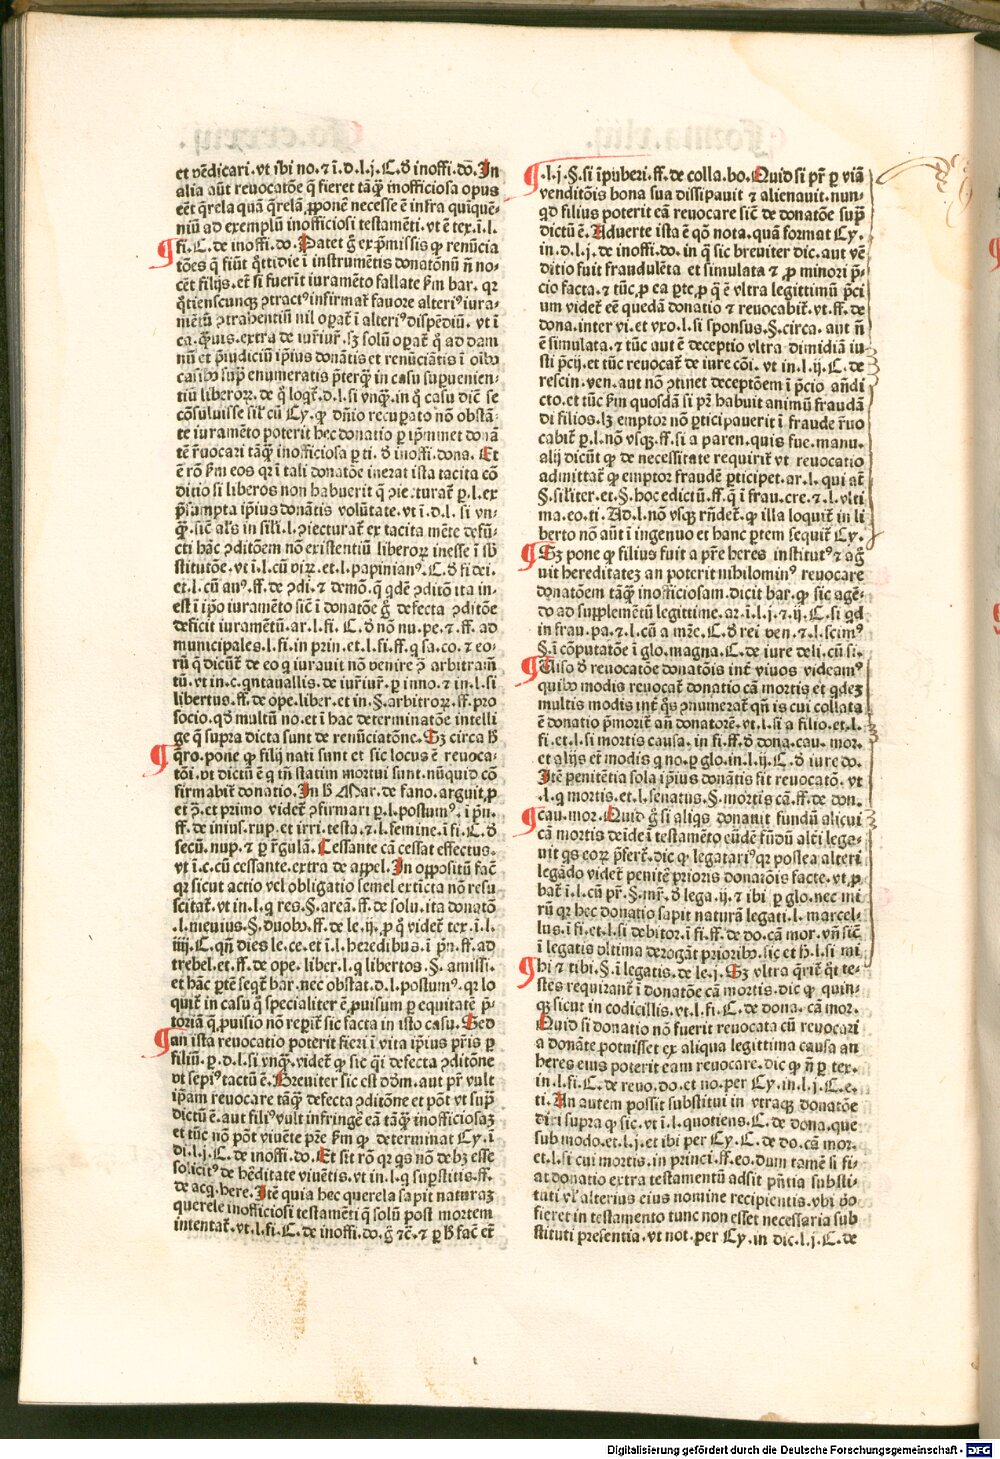 et vēdicari. vt ibi no. ⁊ ī. d. l. j. C. ď inoffi. dō. In
alia aūt reuocatōe q̄ fieret tāq̄ꝫ inofficiosa opus
eēt q̄rela quā q̄relā ꝓponē necesse ē infra quīquē-
niū ad exemplū inofficiosi testamēti. vt ē tex. ī. l.
fi. C. de inoffi. do. Patet ḡ ex p̄missis ꝙ renūcia
tōes q̄ fiūt q̄ttidie ī instrumētis donatōnū n̄ no-
cēt filijs. et si fuerit iuramēto fallate ẜm bar. qꝛ
q̄tienscunqꝫ ꝯtractꝰ infirmat̄ fauore alteriꝰ iura-
mētū ꝯtrahentiū nil oꝑat̄ ī alteriꝰ dispēdiū. vt ī
ca. q̄uis. extra de iur̄iur̄. sꝫ solū oꝑat̄ q̊ ad dam
nū et p̄iudiciū ip̄ius donātis et renūciātis ī oībꝰ
casibꝰ sup̄ enumeratis p̄terq̄ꝫ in casu suꝑuenien-
tiū liberoꝝ. de q̊ loqt̄. d. l. si vnqꝫ. in q̊ casu dic̄ se
cōsuluisse sil̄ cū Cy. ꝙ dn̄io recuꝑato nō obstā-
te iuramēto poterit hec donatio ꝑ ip̄mmet donā
tē r̄uocari tāqꝫ inofficiosa ꝑ ti. ď inoffi. dona. Et
ē rō ẜm eos qꝛ ī tali donatōe inerat ista tacita cō
ditio si liberos non habuerit q̄ ꝯiecturat̄ ꝑ. l. ex
p̄sumpta ip̄ius donātis volūtate. vt ī. d. l. si vn-
qꝫ. sic̄ al's in sili'. l. ꝯiecturat̄ ex tacita mēte defū-
cti hāc ꝯditōem nō existentiū liberoꝝ inesse ī sb̄
stitutōe. vt ī. l. cū viꝝ. et. l. papinianꝰ. C. ď fi dei.
et. l. cū auꝰ. ff. de ꝯdi. ⁊ demō. q̄ qdē ꝯditō ita in-
est ī ip̄o iuramēto sic̄ ī donatōe ḡ defecta ꝯditōe
deficit iuramētū. ar. l. fi. C. ď nō nu. pe. ⁊. ff. ad
municipales. l. fi. in prin. et. l. si. ff. q̄ sa. co. ⁊ eo-
rū q̄ dicūt̄ de eo q̄ iurauit nō venire ꝯ̄ arbitram̄
tū. vt in. c. qntauallis. de iur̄iur̄. ꝑ inno. ⁊ in. l. si
libertus. ff. de ope. liber. et in. §. arbitroꝝ. ff. pro
socio. qď multū no. et ī hac determinatōe intelli
ge q̄ supra dicta sunt de renūciatōne. Sꝫ circa ħ
q̄ro. pone ꝙ filij nati sunt et sic locus ē reuoca-
tōī. vt dictū ē q̄ tn̄ statim mortui sunt. nūquid cō
firmabit̄ donatio. In ħ Mar. de fano. arguit ꝓ
et ꝯ̄. et primo videt̄ ꝯfirmari ꝑ. l. postumꝰ. ī p̄n.
ff. de inius. rup. et irri. testa. ⁊. l. femine. ī fi. C. ď
secū. nup. ⁊ ꝑ r̄gulā. Cessante cā cessat effectus.
vt ī. c. cū cessante. extra de appel. In oppositū fac̄
qꝛ sicut actio vel obligatio semel exticta nō resu
scitat̄. vt in. l. q̄ res. §. areā. ff. de solu. ita donatō
. l. meuius. §. duobꝰ. ff. de le. ij. ꝑ q̄ videt̄ tex. ī. l.
iiij. C. qn̄ dies le. ce. et ī. l. heredibus. ī p̄n. ff. ad
trebel. et. ff. de ope. liber. l. q̄ libertos. §. amissi.
et hāc ꝑtē seqt̄ bar. nec obstat. d. l. postumꝰ. qꝛ lo
quit̄ in casu q̊ specialiter ē ꝓuisum ꝑ equitatē p̄-
toriā q̄ ꝓuisio nō reꝑit̄ sic facta in isto casu. Sed
an ista reuocatio poterit fieri ī vita ip̄ius pr̄is ꝑ
filiū. ꝑ. d. l. si vnqꝫ. videt̄ ꝙ sic qī defecta ꝯditōne
vt sepiꝰ tactū ē. Breuiter sic est dōm. aut pr̄ vult
ip̄am reuocare tāqꝫ defecta ꝯditōne et pōt vt sup̄
dictū ē. aut filiꝰ vult infringē cā tāqꝫ inofficiosaꝫ
et tūc nō pōt viuēte pr̄e ẜm ꝙ determinat Cy. ī
di. l. j. C. de inoffi. do. Et sit rō qꝛ qs nō debꝫ esse
solicitꝰ de hēditate viuētis. vt in. l. q̄ suꝑstitis. ff.
de acq. here. Itē quia hec querela sapit naturaꝫ
querele inofficiosi testamēti q̄ solū post mortem
intentat̄. vt. l. fi. C. de inoffi. do. ḡ ⁊c̄. ⁊ ꝑ ħ fac̄ ēt
. l. j. §. si īpuberi. ff. de colla. bo. Quid si pr̄ ꝑ viā
venditōis bona sua dissipauit ⁊ alienauit. nun-
qd filius poterit eā reuocare sic̄ de donatōe sup̄
dictū ē. Aduerte ista ē qō nota. quā format Cy.
in. d. l. j. de inoffi. do. in q̄ sic breuiter dic. aut vē
ditio fuit fraudulēta et simulata ⁊ ꝓ minori p̄-
cio facta. ⁊ tūc ꝓ ea ꝑte. ꝓ q̄ ē vltra legittimū p̄ci
um videt̄ eē quedā donatio ⁊ reuocabit̄. vt. ff. de
dona. inter vi. et vxo. l. si sponsus. §. circa. aut n̄
ē simulata. ⁊ tūc aut ē deceptio vltra dimidiā iu-
sti p̄cij. et tūc reuocat̄ de iure cōi. vt in. l. ij. C. de
rescin. ven. aut nō ꝯtinet deceptōem ī p̄cio an̄di
cto. et tūc ẜm quosdā si pr̄ habuit animū fraudā
di filios. lꝫ emptor nō ꝑticipauerit ī fraude r̄uo
cabit̄ ꝑ. l. nō vsqꝫ. ff. si a paren. quis fue. manu.
alij dicūt ꝙ de necessitate requirit̄ vt reuocatio
admittat̄ ꝙ emptor fraudē ꝑticipet. ar. l. qui at̄
§. siliter. et. §. hoc edictū. ff. q̄ ī frau. cre. ⁊. l. vlti
ma. eo. ti. Ad. l. nō vsqꝫ rn̄det̄. ꝙ illa loquit̄ in li
berto nō aūt ī ingenuo et hanc ꝑtem sequit̄ Cy.
Sꝫ pone ꝙ filius fuit a pr̄e heres institutꝰ ⁊ ag̊
uit hereditateꝫ an poterit nihilominꝰ reuocare
donatōem tāqꝫ inofficiosam. dicit bar. ꝙ sic agē-
do ad supplemētū legittime. ar. ī. l. j. ⁊. ij. C. si qd
in frau. pa. ⁊. l. cū a mr̄e. C. ď rei ven. ⁊. l. scimꝰ
§. ī cōputatōe ī glo. magna. C. de iure deli. cū si.
Uiso ď reuocatōe donatōis int̄ viuos videamꝰ
quibꝰ modis reuocat̄ donatio cā mortis et qdeꝫ
multis modis int̄ q̊s ꝯnumerat̄ qn̄ is cui collata
ē donatio p̄morit̄ an̄ donatorē. vt. l. si a filio. et. l.
fi. et. l. si mortis causa. in fi. ff. ď dona. cau. mor.
et alijs ēt modis q̄ no. ꝑ glo. in. l. ij. C. ď iure do.
Itē penitētia sola ip̄ius donātis fit reuocatō. vt
. l. q̄ mortis. et. l. senatus. §. mortis cā. ff. de don.
cau. mor. Quid ḡ si aliqs donauit fundū alicui
cā mortis deīde ī testamēto eūdē fūdū alt̄i lega-
uit qs eoꝝ p̄fert̄. dic ꝙ legatariꝰ qꝛ postea alteri
legādo videt̄ penitē prioris donatōis facte. vt ꝓ
bat̄ ī. l. cū pr̄. §. mr̄. ď lega. ij. ⁊ ibi ꝑ glo. nec mi
rū qꝛ hec donatio sapit naturā legati. l. marcel-
lus. ī fi. et. l. si debitor. ī fi. ff. de do. cā mor. vn̄ sic̄
ī legatis vltima derogāt prioribꝰ. sic et ħ. l. si mi
hi ⁊ tibi. §. ī legatis. de le. j. Sꝫ vltra q̄rit̄ q̊t te-
stes requirant̄ ī donatōe cā mortis. dic ꝙ quin-
qꝫ sicut in codicillis. vt. l. fi. C. de dona. cā mor.
Quid si donatio nō fuerit reuocata cū reuocari
a donāte potuisset ex aliqua legittima causa an
heres eius poterit eam reuocare. dic ꝙ n̄ ꝑ tex.
in. l. fi. C. de reuo. do. et no. per Cy. in. l. j. C. e.
ti. An autem possit substitui in vtraqꝫ donatōe
dixi supra ꝙ sic. vt ī. l. quotiens. C. de dona. que
sub modo. et. l. j. et ibi per Cy. C. de do. cā mor.
et. l. si cui mortis. in princi. ff. eo. dum tamē si fi-
at donatio extra testamentū adsit p̄ntia substi-
tuti vl' alterius eius nomine recipientis. vbi ꝟo
fieret in testamento tunc non esset necessaria sub
stituti presentia. vt not. per Cy. in dic. l. j. C. de
Digitalisierung gefördert durch die Deutsche Forschungsgemeinschaft - DFG